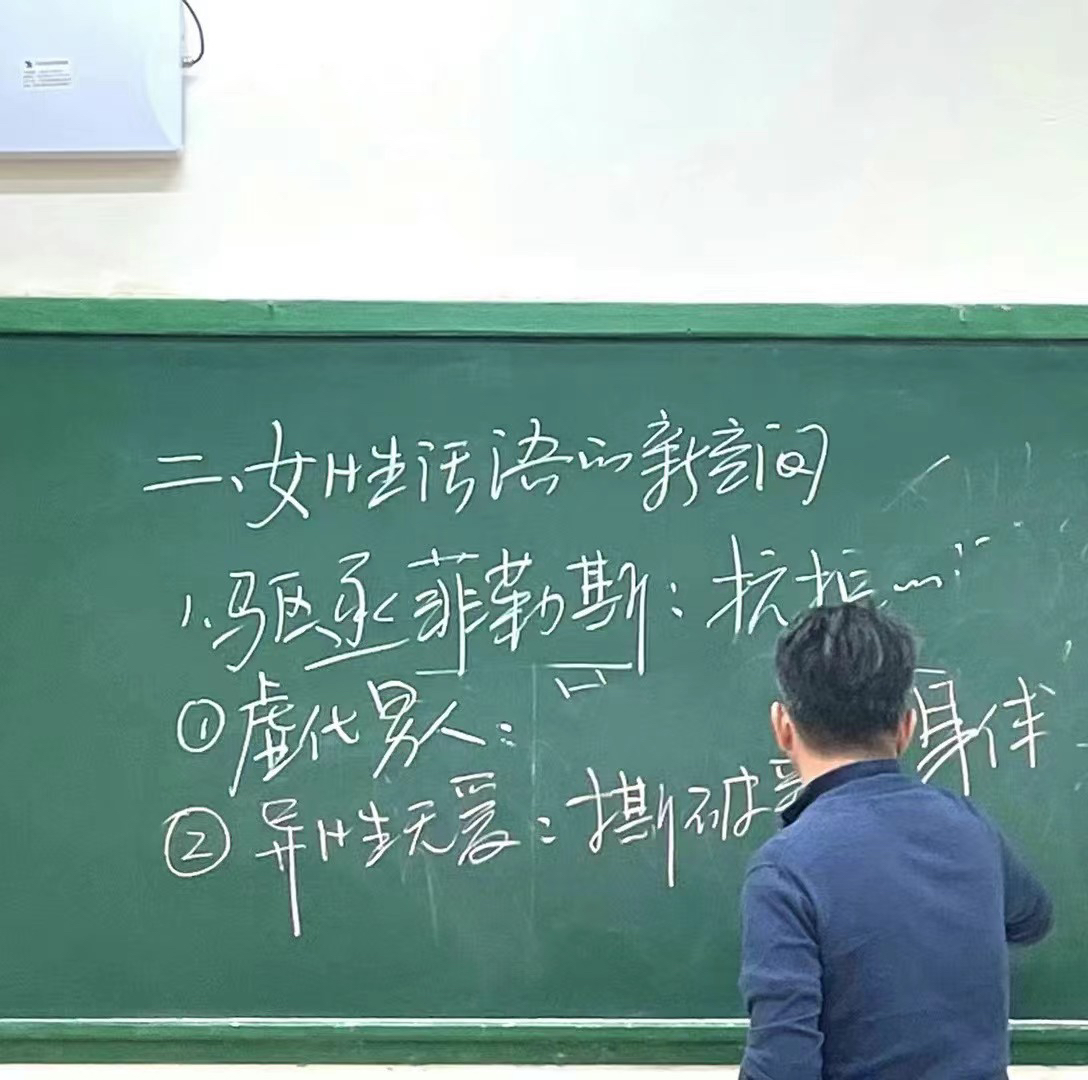 二、女性话语的新空间
1.驱丞菲勒斯：抗拒
①虚代男人：
②异性无爱：撕破 身体